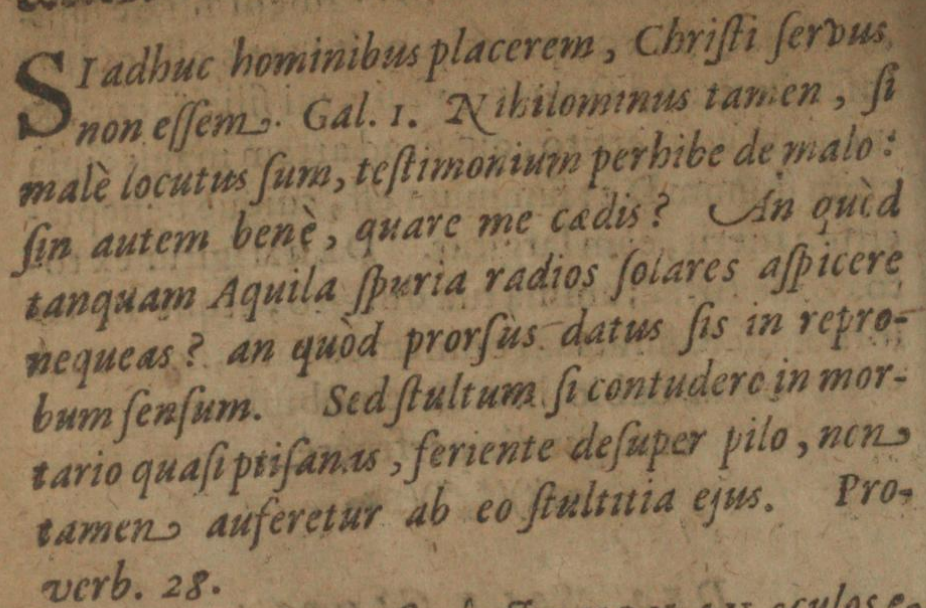 SI adhuc hominibus placerem, Chriſti ſervus
non eſſem. Gal. 1. Nihilominus tamen, ſi
malè locutus ſum, teſtimonium perhibe de malo:
ſin autem benè, quare me cædis? An quòd
tanquam Aquila ſpuria radios ſolares aſpicere
nequeas? an quòd prorſùs datus ſis in repro-
bum ſenſum. Sed ſtultum ſi contudero in mor-
tario quaſi ptiſanas, feriente deſuper pilo, non
tamen auferetur ab eo ſtultitia ejus. Pro-
verb. 28.
oculos